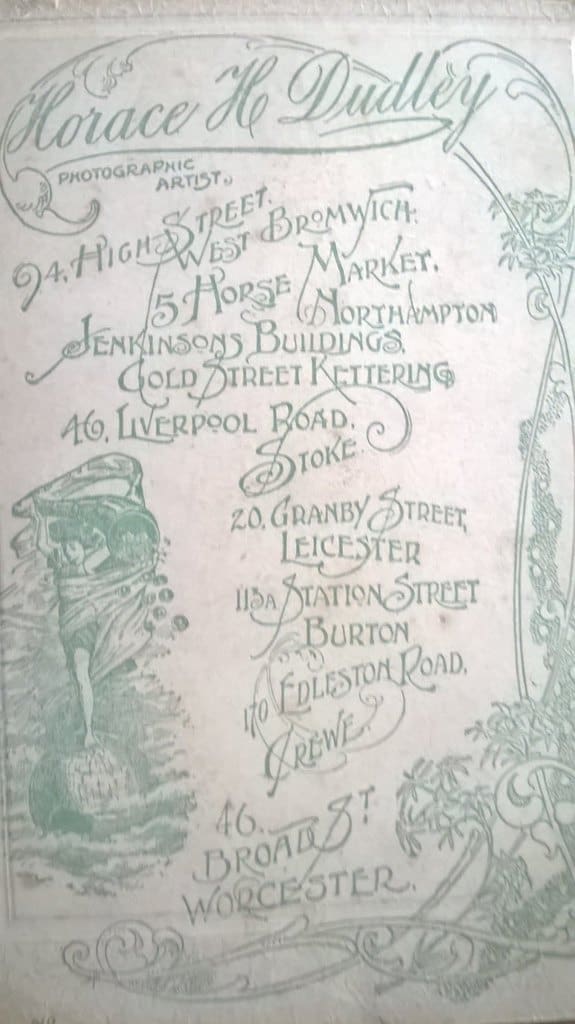 Horace H Dudley
PHOTOGRAPHIC
ARTIST.
94, HIGH STREET.
WEST BROMWICH.
5 HORSE MARKET.
NORTHAMPTON
JENKINSONS BUILDINGS.
GOLD STREET KETTERING
46, LIVERPOOL ROAD.
STOKE.
20, GRANBY STREET,
LEICESTER
113A STATION STREET
BURTON
170 EDLESTON ROAD,
CREWE.
46.
BROAD ST
WORCESTER.